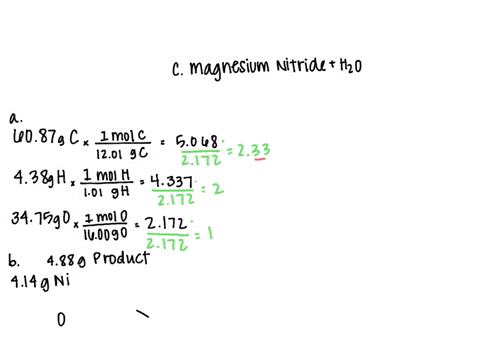 C. Magnesium Nitride + H₂O
a.
60.87g C × 1 mol C / 12.01 gC = 5.068 / 2.172 = 2.33
4.38g H × 1 mol H / 1.01 gH = 4.337 / 2.172 = 2
34.75gO × 1 mol O / 16.00gO = 2.172 / 2.172 = 1
b. 4.88g Product
4.14g Ni
O